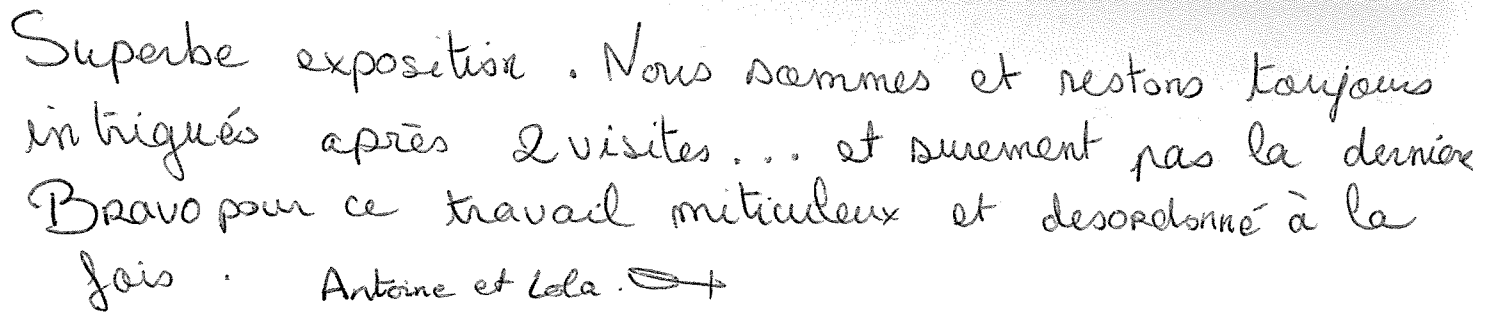 Superbe exposition. Nous sommes et restons toujours
intrigués après 2 visites... et surement pas la dernière
Bravo pour ce travail miticuleux et desordonné à la
fois. Antoine et Lola.